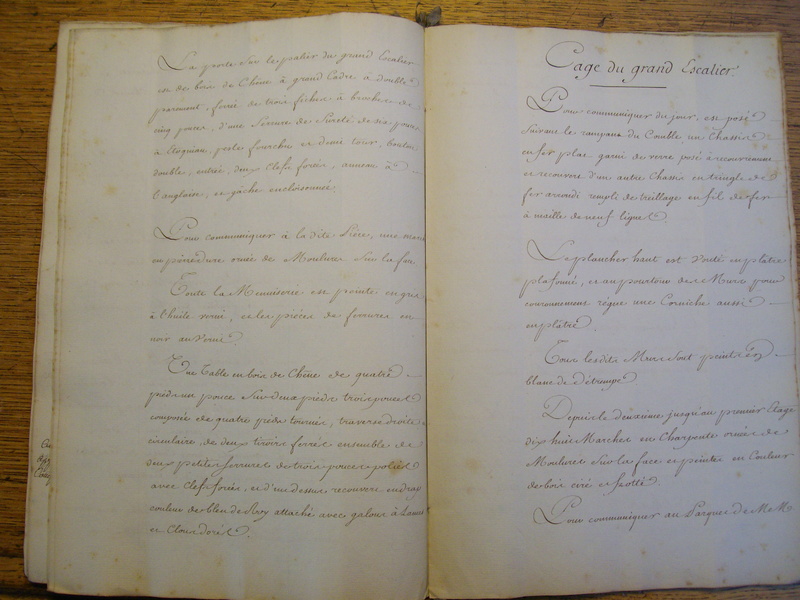 La porte sur le palier du grand Escalier
est de bois de Chêne à grand Cadre à double
parement, ferrée de trois fiches à broches de
cinq pouces, d'une Serrure de Sureté de six pouces
à Etoquiau, pesle fourchu et demie tour, bouton
double, entrée, deux Clefs forées, anneau à
l'anglaise, et gâche encloisonnée.
Pour communiquer à la
en ornée de Moulures sur la face
Toute la Menuiserie est peinte en gris
à l'huile verni, et les pièces de ferrures en
noir au Vernis.
Une Table en bois de Chêne de quatre
pieds un pouce sur deux pieds trois pouces
composée de quatre pieds tournés, traverse droite
circulaire, de deux tiroirs ferrés ensemble de
deux petites serrures de trois pouces polies
avec Clefs forées, et d'un dessus recouvert en drap
couleur de bleu de Roy attaché avec galons à Lames
et Clous dorés.
Cage du grand Escalier.
Pour communiquer du jour, est posé
suivant le rampant du Comble un Chassis
en fer plat garni de verre posé à recouvrement
et recouvert d'un autre Chassis en tringle de
fer arrondi rempli de treillage en fil de fer
à maille de neuf lignes.
Le plancher haut est Vouté en plâtre
plafonné, et au pourtour des Murs pour
couronnement règne une Corniche aussi
en plâtre.
Tous lesdits Murs sont peints en
blanc de détrempe
Depuis le deuxième jusqu'au premier Etage
dix huit Marches en Charpente ornées de
Moulures sur la face et peintes en Couleur
de bois ciré et frotté.
Pour communiquer au Parquet de M.M.